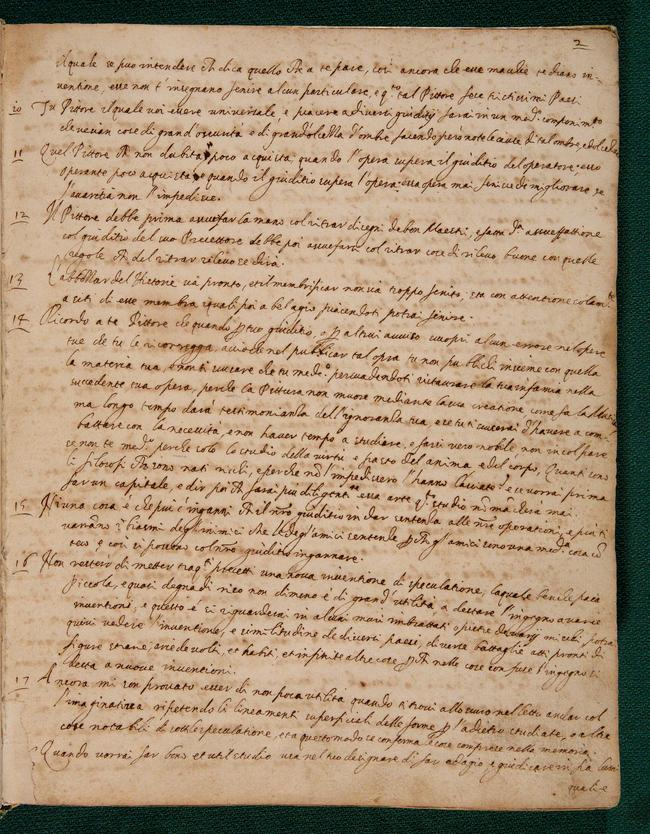 2
il quale se può intendere ch dica quello ch a te pare, così ancora che esse machie te diano in-
ventione, esse non t'insegnano finire alcun particulare, e q.to tal Pittore fece tristissimi Paesi
10 Tu Pittore il quale voi essere universale, e piacere a diversi giuditij farai in un med.o componim.to
che vi sian cose di grand'oscurità e di grandolcezza d'ombre, facendo però note le cause di tal ombre, e dolcezza
11 Quel Pittore ch non dubita poco acquista, quando l'opera supera il giuditio del operatore, esso
operante poco acquista e quando il giuditio supera l'opera essa opera mai finisce di migliorare, se
l'avaritia non l'impedisse.
12 Il Pittore debbe prima assuefar la mano col ritrar disegni de bon Maestri, e fatta d.a assuefattione
col giuditio del suo Precettore debbe poi assuefarsi col ritrar cose di rilevo buone con quelle
regole ch del ritrar rilevo se dirà.
13 L'abbozzar dell'historie sia pronto, et il membrificar non sia troppo finito, sta con attentione solam.te
a siti di esse membra i quali poi a bel agio piacendoti potrai finire.
14 Ricordo a te Pittore che quando p tuo giuditio, o p altrui aviso scuopri alcun errore nel opere
tue che tu le ricorregga, acciochè nel publicar tal opra tu non publichi insieme con quella
la materia tua, e non ti scusare che tu med.o persuadendoti ristaurare la tua infamia nella
succedente tua opera, perche la Pittura non muore mediante la sua creatione come fa la Musica
ma longo tempo darà testimonianza dell'ignoranza tua, e se tu ti scuserai d'havere a com-
battere con la necessità, e non haver tempo a studiare, e farsi vero nobile, non incolpare
se non te med.o perche solo lo studio della virtù è pasto del anima e del corpo, Quanti sono
li filosofi ch sono nati richi, e perche nõ l'impedissero l'hanno lasciate? e se vorrai prima
far un capitale, e dir poi ch sarai più diligent.te essa arte q.to studio nõ ma desa mai
15 Niuna cosa è che più c'inganni ch il nro giuditio in dar sentenza alle nre operationi, e più ti
varranno i biasmi degl'inimici che de gl'amici sentenze p ch gl'amici sono una med.a cosa cõ
teco e così ti possono col nro giuditio ingannare.
16 Non resterò di metter tra q.ti precetti una nova inventione di speculatione, la quale benche paia
piccola, e quasi degna di riso non dimeno è di grand'utilità a destare l'ingegno a varie
inventioni, e questo è se riguarderai in alcuni muri imbrattati o pietre de varij mischi potrai
quivi vedere l'inventione, e similitudine de diversi paesi, diverse battaglie atti pronti di
figure strane, arie de volti, et habiti, et infinite altre cose p ch nelle cose confuse l'ingegno si
desta a nuove inventioni.
17 Ancora mi son provato esser di non poca utilità quando ti trovi allo scuro nel letto andar col
l'imaginativa repetendo li lineamenti superficiali delle forme p l'adietro studiate, o altre
cose notabili di sottile speculatione, et a questo modo se conferma le cose comprese nella memoria.
Quando vorrai far bono et util studio usa nel tuo designare di far adagio e giudicare infra lumi
quali e